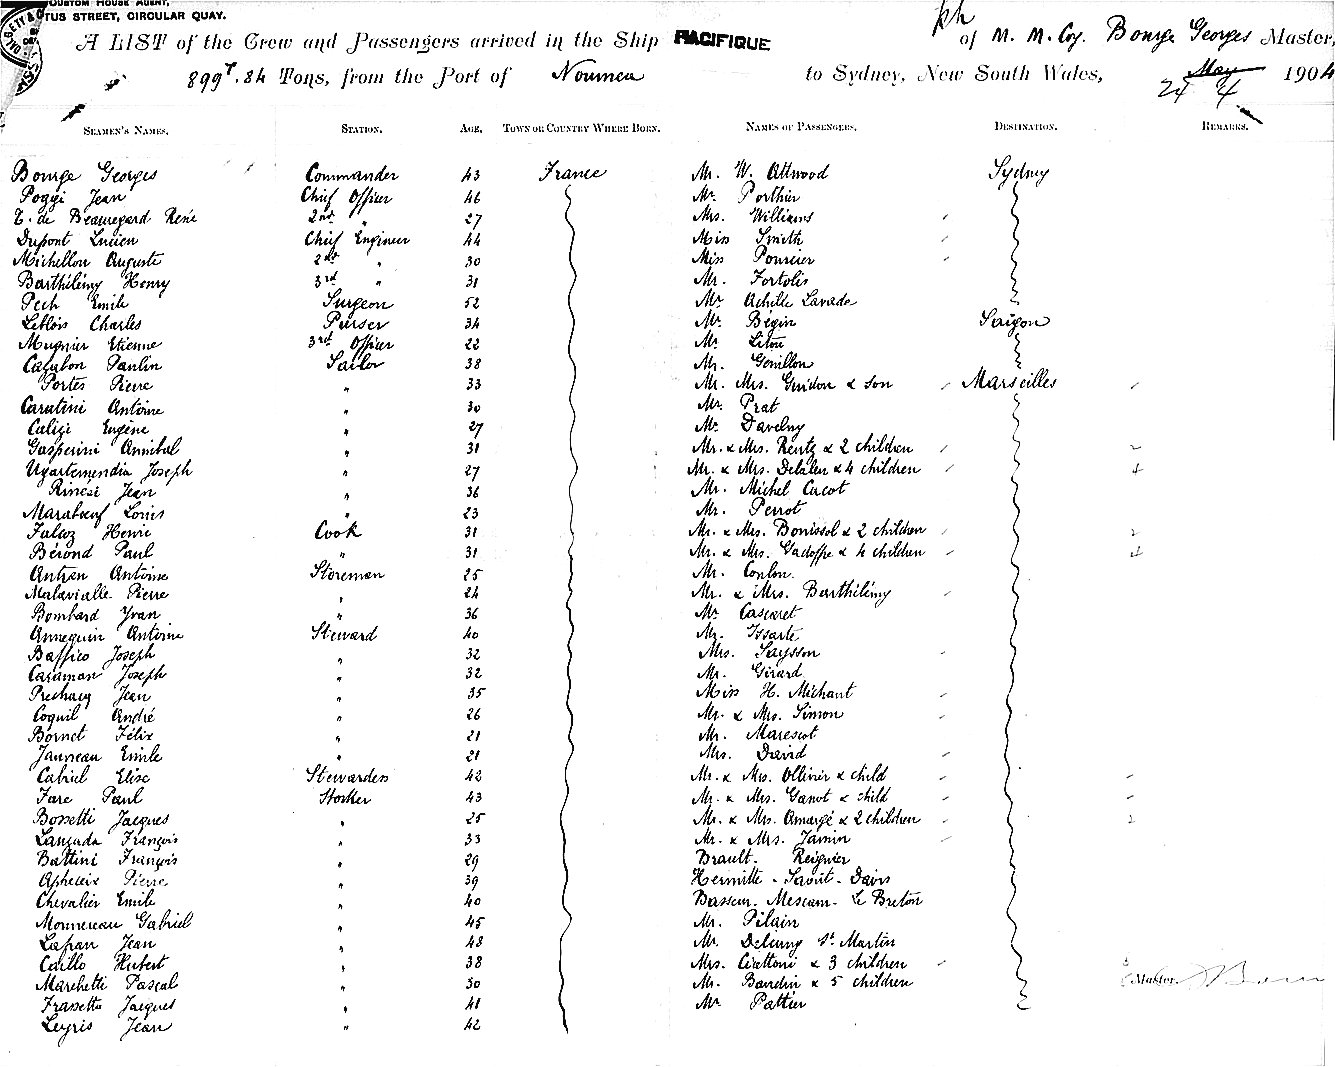 CUSTOM HOUSE AGENT,
TUS STREET, CIRCULAR QUAY.
A LIST of the Crew and Passengers arrived in the Ship PACIFIQUE of M. M. Coy. Bourge Georges Master,
899 T. 84 Tons, from the Port of Noumea to Sydney, New South Wales, May 24 4 1904
SEAMEN'S NAMES. STATION. AGE. TOWN OR COUNTRY WHERE BORN. NAMES OF PASSENGERS. DESTINATION. REMARKS.
Bourge Georges Commander 43 France Mr. W. Attwood Sydney
Poggi Jean Chief Officer 46 Mr. Porthier
T. de Beauregard René 2nd " 27 Mrs. Williams
Dupont Lucien Chief Engineer 44 Miss Smith
Michellon Auguste 2nd " 30 Miss Poursier
Barthélémy Henry 3rd " 31 Mr. Fortolis
Pech Emile Surgeon 52 Mr. Achille Lavade
Leblois Charles Purser 34 Mr. Bégin Saïgon
Mugnier Etienne 3rd Officer 22 Mr. Litou
Casabon Paulin Sailor 38 Mr. Genillon
Portes Pierre " 33 Mr. Mrs. Guidon & son Marseilles
Caratini Antoine " 30 Mr. Prat
Caligi Eugène " 27 Mr. Davelny
Gasperini Annibal " 31 Mr. & Mrs. Rentz & 2 children 2
Ugartemendia Joseph " 27 Mr. & Mrs. Delaleu & 4 children 4
Rincé Jean " 36 Mr. Michel Cacot
Maraboeuf Louis " 23 Mr. Perrot
Falcoz Henri Cook 31 Mr. & Mrs. Bonissol & 2 children 2
Bérond Paul " 31 Mr. & Mrs. Gadoffre & 4 children 4
Antzen Antoine Storeman 25 Mr. Conlon.
Malavialle Pierre " 24 Mr. & Mrs. Barthélémy
Bombard Yvan " 36 Mr. Cascaret
Annequin Antoine Steward 40 Mr. Issarte
Baffico Joseph " 32 Mrs. Saysson
Casaman Joseph " 32 Mr. Girard
Prechacq Jean " 35 Miss H. Michant
Coquil André " 26 Mr. & Mrs. Simon
Bornet Félix " 21 Mr. Marescot
Jauneau Emile " 21 Mrs. David
Cabriel Elise Stewardess 42 Mr. & Mrs. Ollivier & child
Fare Paul Stocker 43 Mr. & Mrs. Ganot & child
Bossetti Jacques " 25 Mr. & Mrs. Amargé & 2 children 2
Languda François " 33 Mr. & Mrs. Jamin
Battini François " 29 Brault. Reignier
Apheceix Pierre " 39 Hermitte - Savit - Davis
Chevalier Emile " 40 Basseur. Mescam. Le Breton
Monnereau Gabriel " 45 Mr. Pilain
Lafran Jean " 48 Mr. Delauny St. Martin
Caillo Hubert " 38 Mrs. Civettoni & 3 children
Marchetti Pascal " 30 Mr. Baudin & 5 children Master.
Frassetto Jacques " 41 Mr. Pattier
Leyris Jean " 42